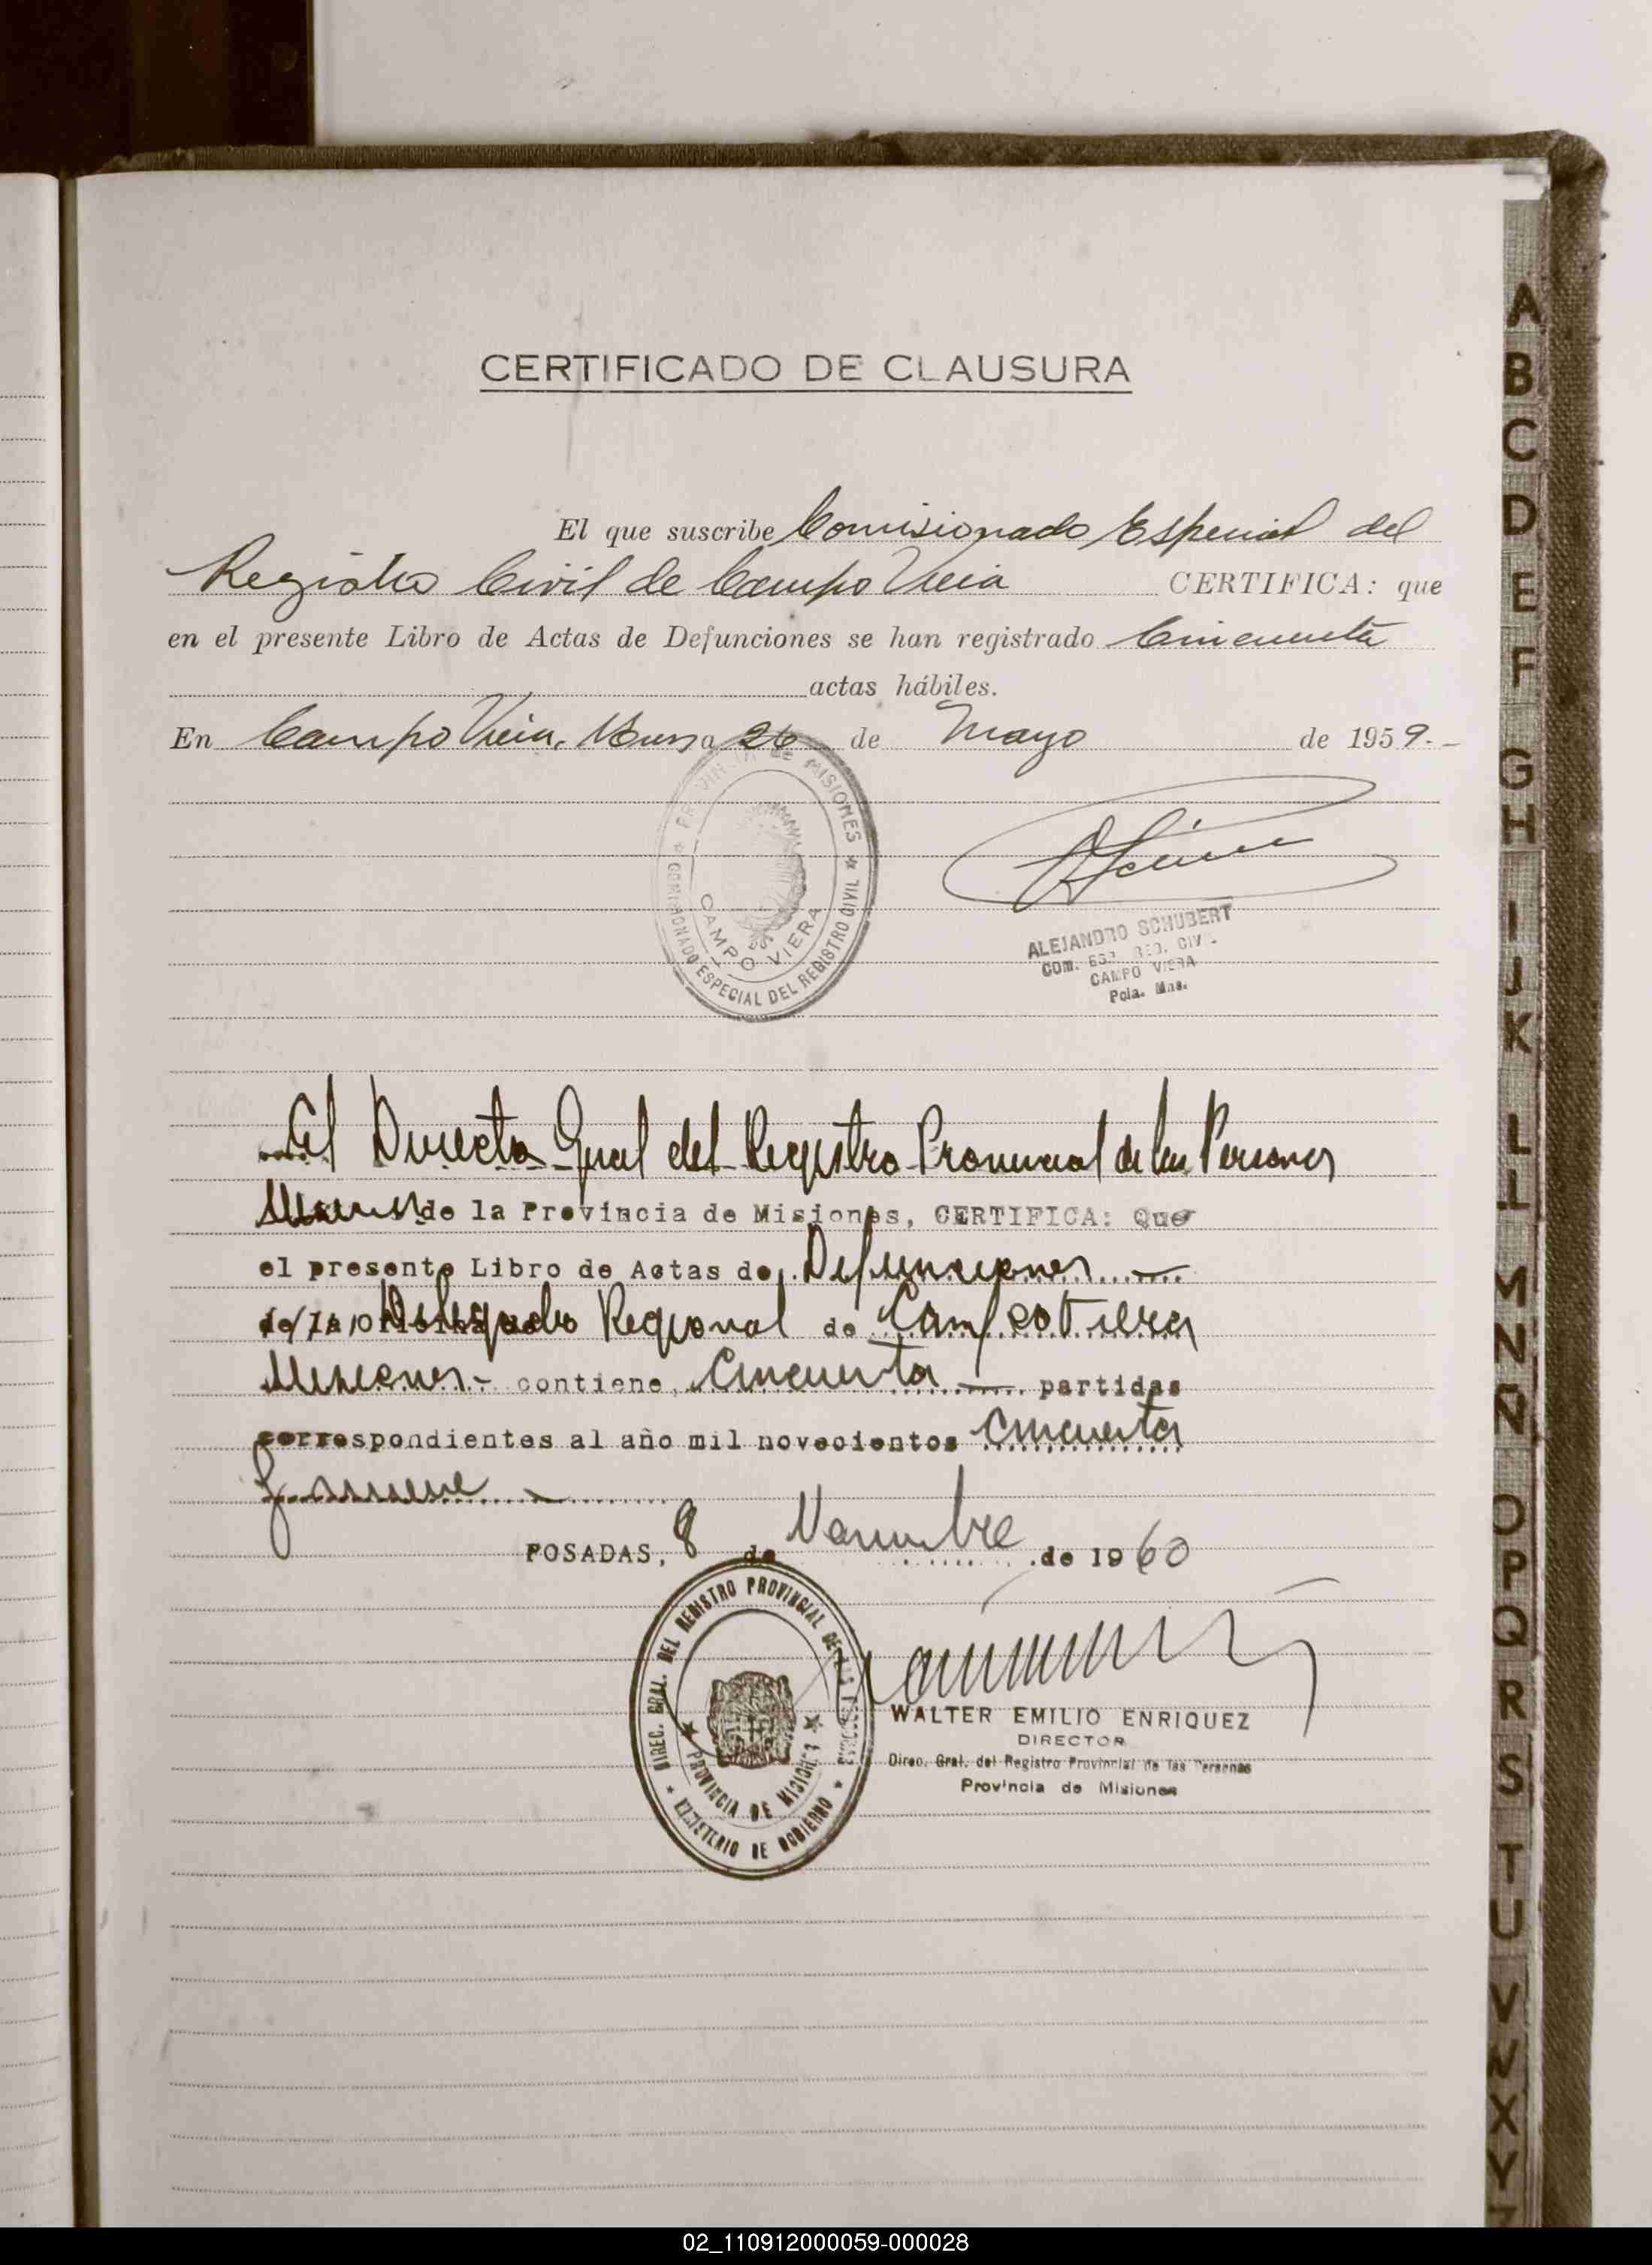 CERTIFICADO DE CLAUSURA
El que suscribe Comisionado Especial del
Registro Civil de Campo Viera CERTIFICA: que
en el presente Libro de Actas de Defunciones se han registrado Cincuenta
actas hábiles.
En Campo Viera, a 26 de Mayo de 1959.-
PROVINCIA DE MISIONES
COMISIONADO ESPECIAL DEL REGISTRO CIVIL
CAMPO VIERA
ALEJANDRO SCHUBERT
COM. ESP. REG. CIVIL
CAMPO VIERA
Pcia. Mns.
El Director Gral del Registro Provincial de las Personas
de la Provincia de Misiones, CERTIFICA: Que
el presente Libro de Actas de Defunciones
Delegado Regional de Campo Viera
Misiones - contiene Cincuenta partidas
correspondientes al año mil novecientos cincuenta
y nueve
POSADAS, 8 de Noviembre de 1960
DIREC. GRAL. DEL REGISTRO PROVINCIAL DE LAS PERSONAS
PROVINCIA DE MISIONES
MINISTERIO DE GOBIERNO
WALTER EMILIO ENRIQUEZ
DIRECTOR
Direc. Gral. del Registro Provincial de las Personas
Provincia de Misiones
A
B
C
D
E
F
G
H
I
J
K
L
LL
M
N
Ñ
O
P
Q
R
S
T
U
V
W
X
Y
Z
02_110912000059-000028